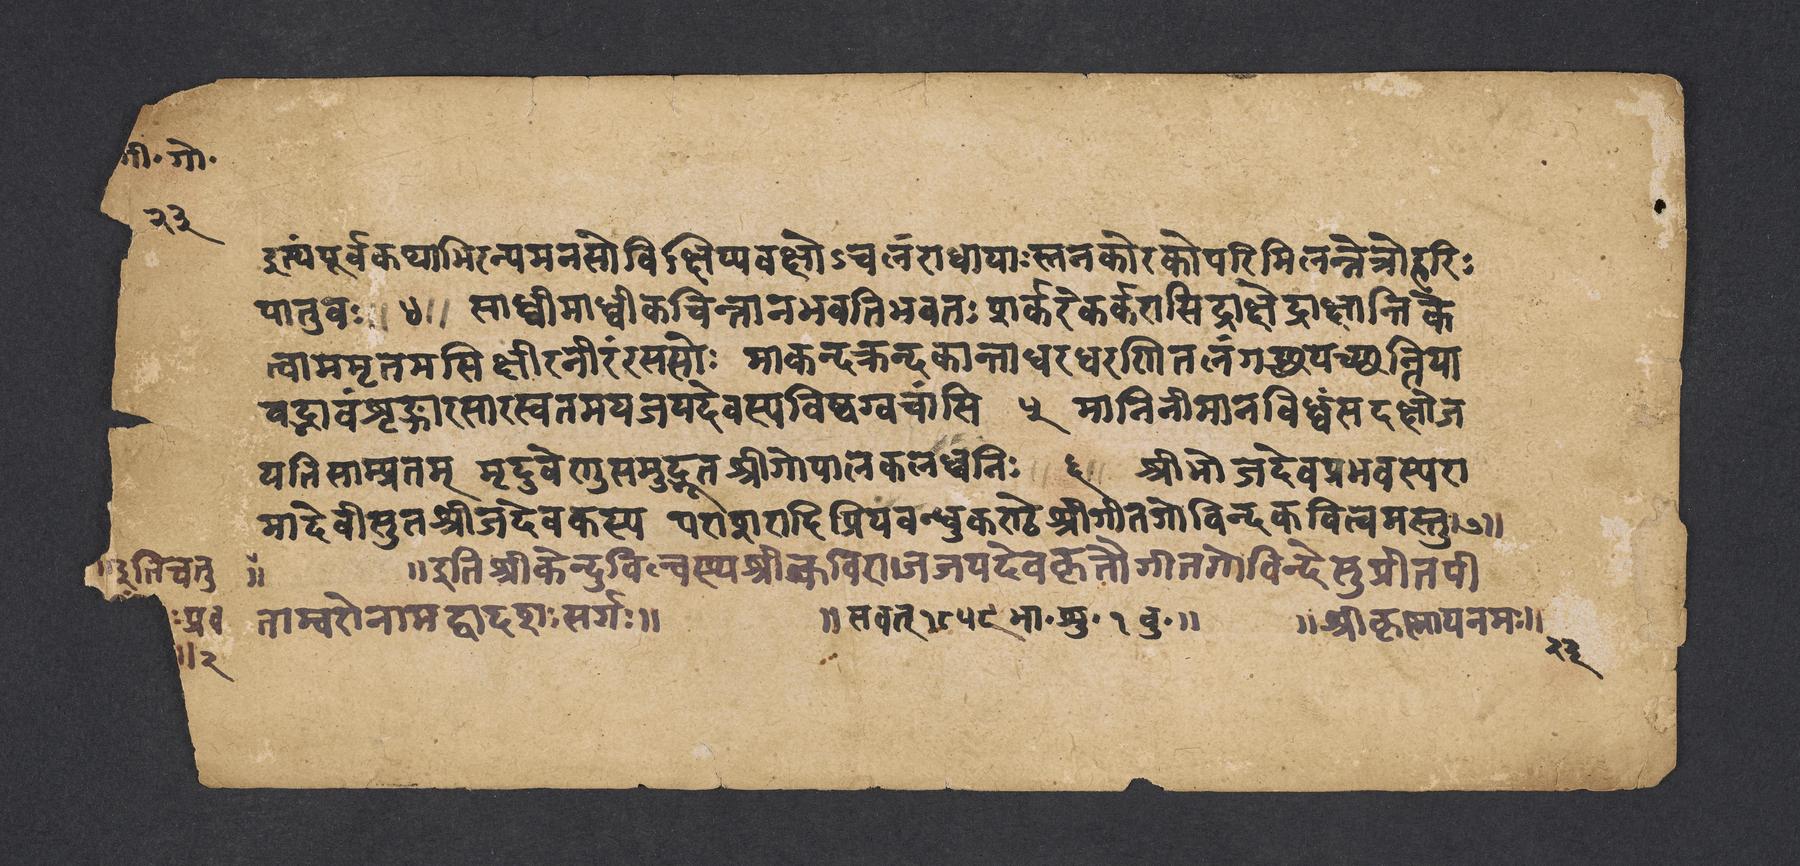 गी॰ गो॰
२३
इत्थंपूर्वकथाभिरन्यमनसोविक्षिप्यवक्षोऽचलंराधायाःस्तनकोरकोपरिमिलन्नेत्रोहरिः
पातुवः॥ ४॥ साध्वीमाध्वीकचिन्तानभवतिभवतः शार्करेकर्करासिद्राक्षेद्रक्षान्तिके
त्वाममृतमसिक्षीरनीरंरससोः माकन्दक्रन्दकान्ताधरधरणितलंगच्छयच्छन्तिया
वद्भावंशृङ्गारसारस्वतमयजयदेवस्यविष्वग्वचांसि ५ मानिनीमानविध्वंसदक्षोज
यतिसाम्प्रतम् मृदुवेणुसमुद्भूतश्रीगोपालकलध्वनिः ॥६॥ श्रीभोजदेवप्रभवस्यरा
मादेवीसुतश्रीजदेवकस्य पराशरादिप्रियवन्धुकण्ठेश्रीगीतगोविन्दकवित्वमस्तु॥७॥
॥इतिचतु
॥इतिश्रीकेन्दुविल्वस्यश्रीकविराजजयदेवकृतौगीतगोविन्देसुप्रीतपी
ः प्रव
ताम्वरोनामद्वादशः सर्गः॥ ॥सवत् १८५९ भा॰ शु॰ १ वु॰॥ ॥श्रीकृस्नायनमः॥
॥२
२३